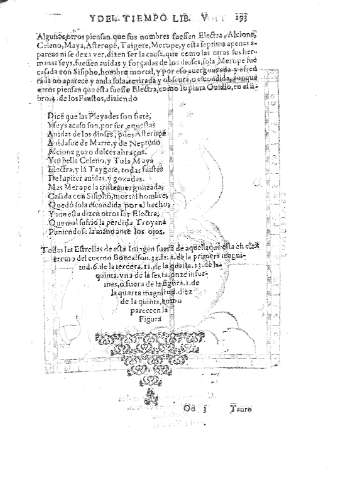 Y DEL TIEMPO LIB. V 193
Algunos otros piensan que sus nombres fuessen Electra, Alcione,
Celeno, Maya, Asterope, Taigete, Merope, y esta septima apenas a-
parece ni se dexa ver, dizen ser la causa, que como las otras sus her-
manas seys, fuessen auidas y forçadas de los dioses, sola Merope fue
casada con Sisipho, hombre mortal, y por esso auergonçada y
no aparece y anda sola retirada y obscura, o escondida, aunque
otros piensan que esta fuesse Electra, como lo pinta Ouidio, en el li-
bro. 4. de los Fastos, diziendo
Dizè que las Pleyades son siete,
Y seys acaso son, por ser aquestas
Auidas de los dioses, pues Asterope
Auida fue de Marte, y de Neptuno
Alcione gozo dulces abraços.
Y su bella Celeno, y Tuis Maya
Electra, y la Taygete, todas fuessen
De Iupiter auidas y gozadas.
Mas Merope la triste auergonçada
Casada con Sisipho, mortal hombre,
Quedò sola escondida por el hecho
Y aun esta dizen otros ser Electra,
Que mal sufrio la perdida Troyana
Poniendose la mano ante los ojos.
Todas las Estrellas de esta Imagen fuera de aquella que està en el ex-
tremo del cuerno Boreal son. 32. la. 1. de la primera magni
tud. 6. de la tercera. 11. de la quarta. 13. de la
quinta. vna de la sexta. onze infor-
mes, o fuera de la figura. 1. de
la quarta magnitud. diez
de la quinta, como
parecen en la
Figura
Oo 3 Tauro